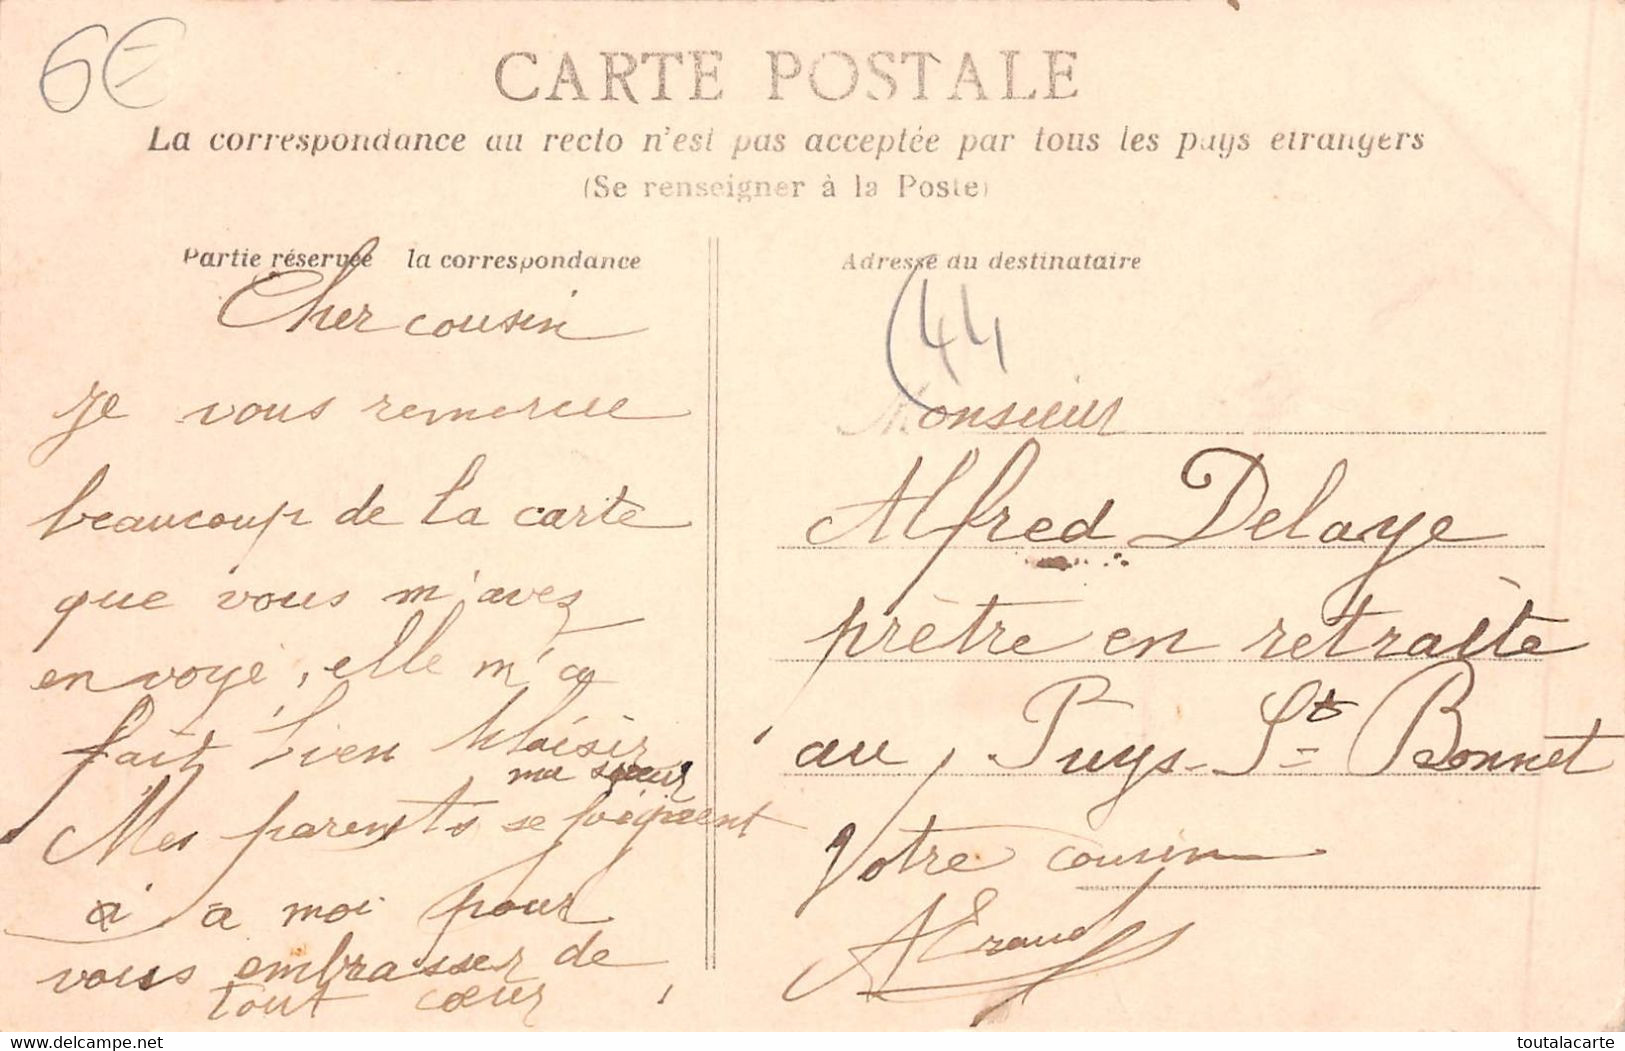 6€
CARTE POSTALE
La correspondance au recto n'est pas acceptée par tous les pays étrangers
(Se renseigner à la Poste)
Partie réservée la correspondance
Cher cousin
Je vous remercie
beaucoup de la carte
que vous m'avez
envoyé, elle m'a
fait bien plaisir
ma sœur
Mes parents se joignent
à à moi pour
vous embrasser de
tout cœur
Adresse du destinataire
(44
Monsieur
Alfred Delaye
prètre en retraite
au Puys-St Bonnet
Votre cousin
A Eraud
delcampe.net
toutalacarte